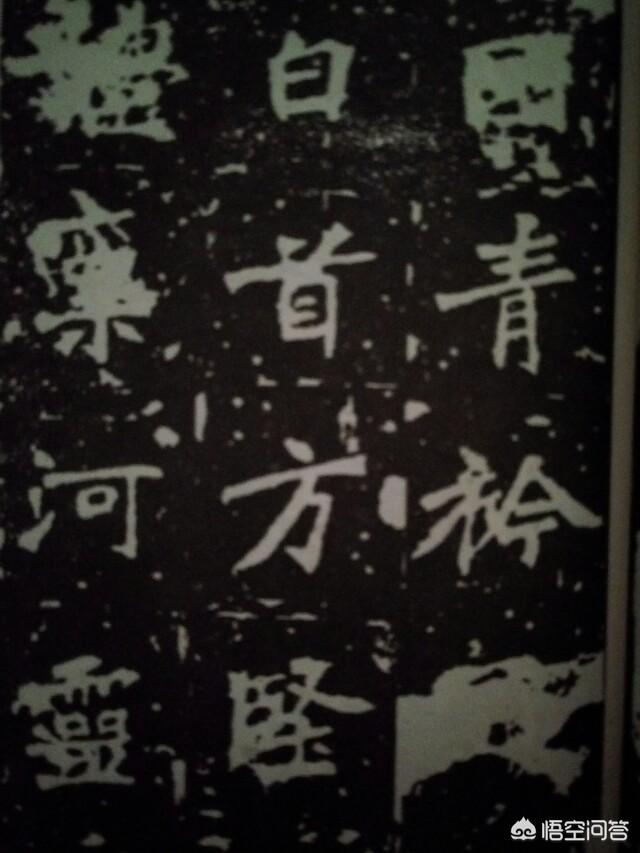 國青衿
白首方堅
體稟河靈
悟空问答